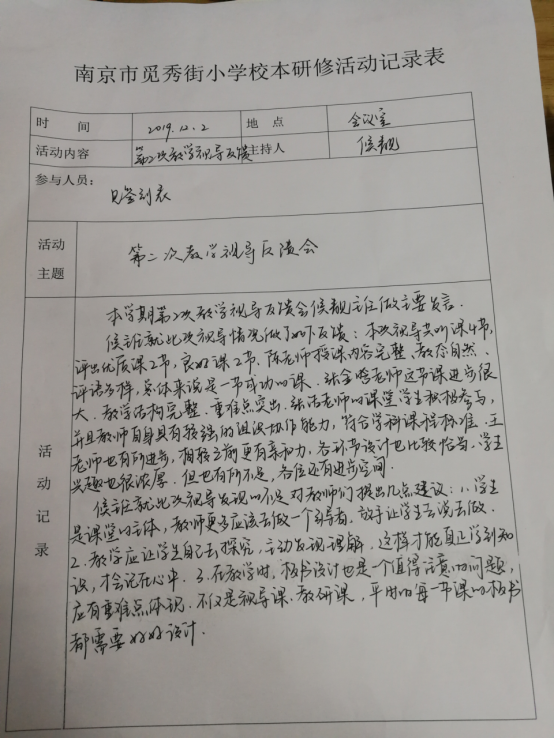 南京市觅秀街小学校本研修活动记录表
时 间 2019.12.2 地 点 会议室
活动内容 第2次教学视导反馈 主持人 侯靓
参与人员：
见签到表
活动主题 第二次教学视导反馈会
活动记录
本学期第2次教学视导反馈会侯靓主任做主要发言.
侯主任就此次视导情况做了如下反馈：本次视导共听课4节,
评出优质课2节，良好课2节. 陈老师授课内容完整、教态自然、
评语多样，总体来说是一节成功的课. 张金 老师这节课进步很
大. 教学结构完整. 重难点突出. 张洁老师的课堂学生积极参与,
并且教师自身具有较强的组织协作能力，符合学科课程标准. 王
老师也有所进步，相较之前更有亲和力，各环节设计也比较恰当. 学生
兴趣也很浓厚. 但也有所不足，各位还有进步空间.
侯主任就此次视导发现的不足对教师们提出几点建议：1. 学生
是课堂的主体，教师更多应该去做一个引导者，放手让学生去说去做.
2. 教学应让学生自己去探究，主动发现理解. 这样才能真正学到知
识，才会记在心中. 3. 在教学时，板书设计也是一个值得注意的问题,
应有重难点体现. 不仅是视导课. 教研课，平时的每一节课的板书
都需要好好设计.